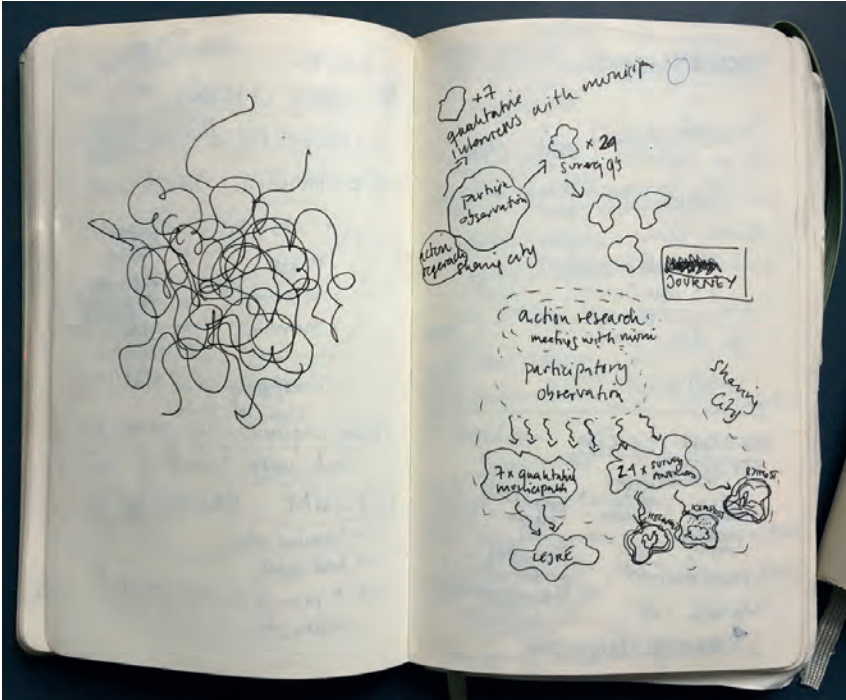 +7
qualitative
interviews with municip
× 24
survey q's
particip
observation
action
research
sharing city
JOURNEY
action research
meeting with muni
participatory
observation
sharing
city
7x qualitative
municipality
24 x survey
LEJRE